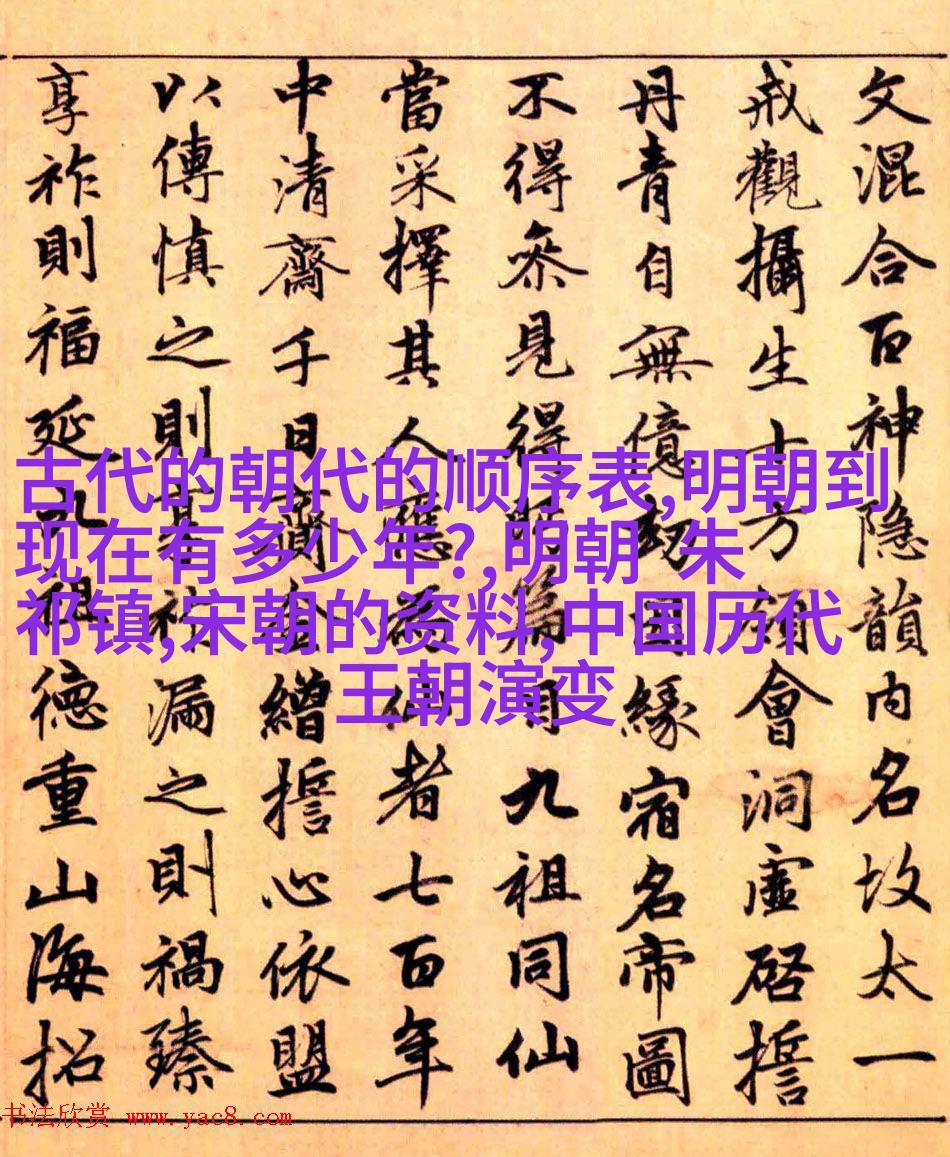 文混合百神隐韻内名太一
戒觀攝生十方領會洞虚啓誓
丹青自無億劫因緣宿名帝圖
不得叅見得篇目九祖同仙
當采擇其人應爲仙者七百年
中清齋千日齎金繒誓心依盟
以傳慎之則漏之則禍臻
享祚則福延九祖德重山海招
古代的朝代的顺序表,明朝到
现在有多少年?,明朝 朱
祁镇,宋朝的资料,中国历代
王朝演变
书法欣赏 www.yac8.com